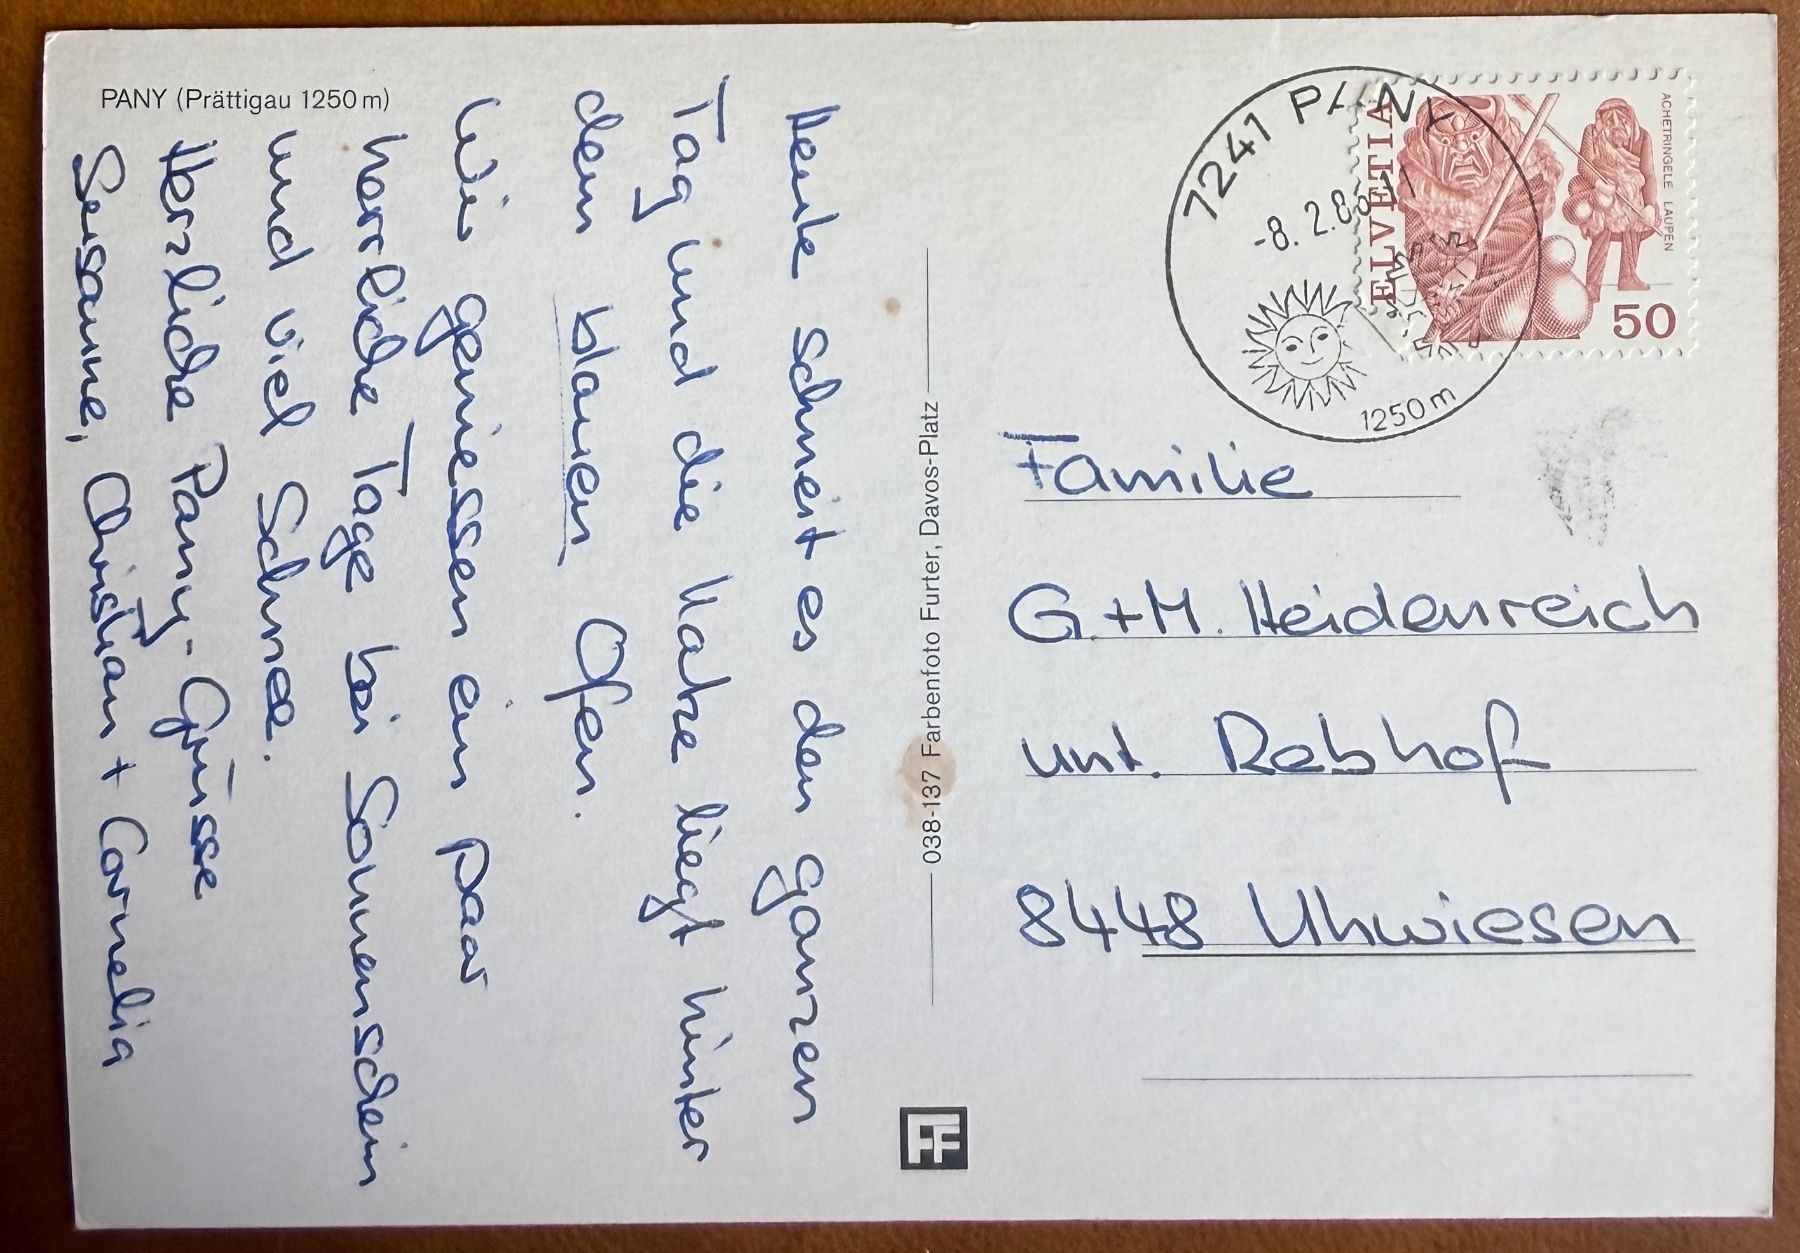 PANY (Prättigau 1250 m)
Heute schneit es den ganzen
Tag und die Katze liegt hinter
dem blauen Ofen.
Wir geniessen ein paar
herrliche Tage bei Sonnenschein
und viel Schnee.
Herzliche Pany-Grüsse
Susanne, Christian + Cornelia
038-137 Farbenfoto Furter, Davos-Platz
FF
7241 PANY
-8. 2. 8
1250 m
HELVETIA
ACHETRINGELE LAUPEN
50
Familie
G.+M. Heidenreich
unt. Rebhof
8448 Uhwiesen